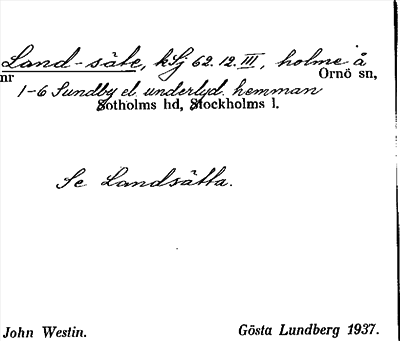 Land-säte, kSj 62.12.III, holme å
nr Ornö sn,
1-6 Sundby el. underlyd. hemman
Sotholms hd, Stockholms l.
Se Landsätta.
John Westin. Gösta Lundberg 1937.